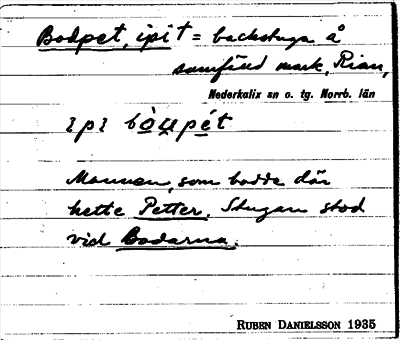 Bodpet, ipit = backstuga å
samfäld mark, Rian,
Nederkalix sn o. tg. Norrb. län
ɩpɩ bòu̯pét
Mannen, som bodde där
hette Petter. Stugan stod
vid Bodarna.
RUBEN DANIELSSON 1935